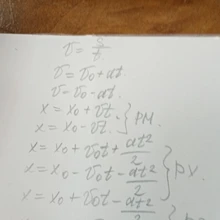 v = s/t
v = v₀ + at.
v = v₀ - at.
x = x₀ + vt. } РМ
x = x₀ - vt.
x = x₀ + v₀t + at²/2 } РУ
x = x₀ - v₀t - at²/2
x = x₀ + v₀t - at²/2